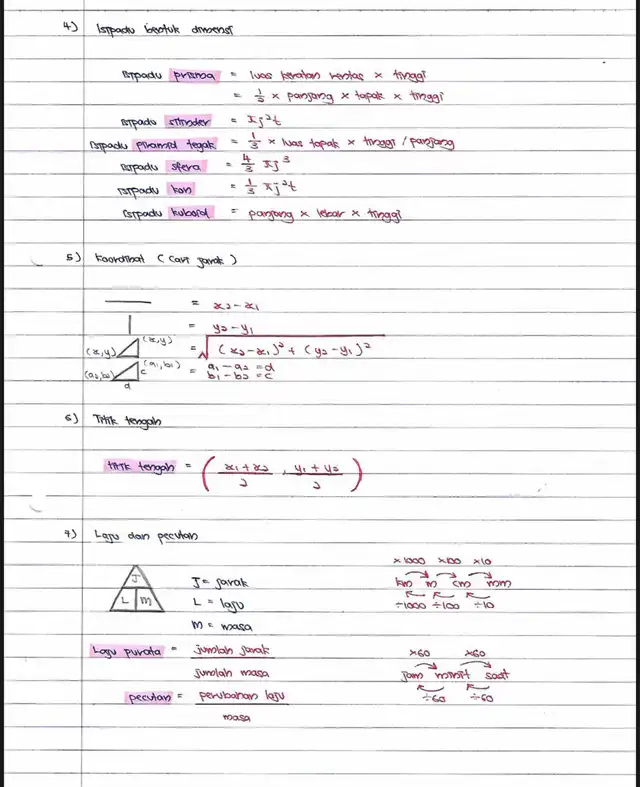 4) Isipadu bentuk dimensi
Isipadu prisma = luas keratan rentas × tinggi
= 1/3 × panjang × tapak × tinggi
Isipadu silinder = πj²t
Isipadu piramid tegak = 1/3 × luas tapak × tinggi / panjang
Isipadu sfera = 4/3 πj³
Isipadu kon = 1/3 πj²t
Isipadu kuboid = panjang × lebar × tinggi
5) Koordinat (cari jarak)
— = x₂ − x₁
| = y₂ − y₁
(x,y) (x,y) = √(x₂ − x₁)² + (y₂ − y₁)²
(a₂,b₂) (a₁,b₁) c = a₁ − a₂ = d
d b₁ − b₂ = c
6) Titik tengah
titik tengah = ( x₁ + x₂ / 2 , y₁ + y₂ / 2 )
7) Laju dan pecutan
×1000 ×100 ×10
J J = jarak km m cm mm
L m L = laju ÷1000 ÷100 ÷10
M = masa
Laju purata = jumlah jarak ×60 ×60
jumlah masa jam minit saat
pecutan = perubahan laju ÷60 ÷60
masa